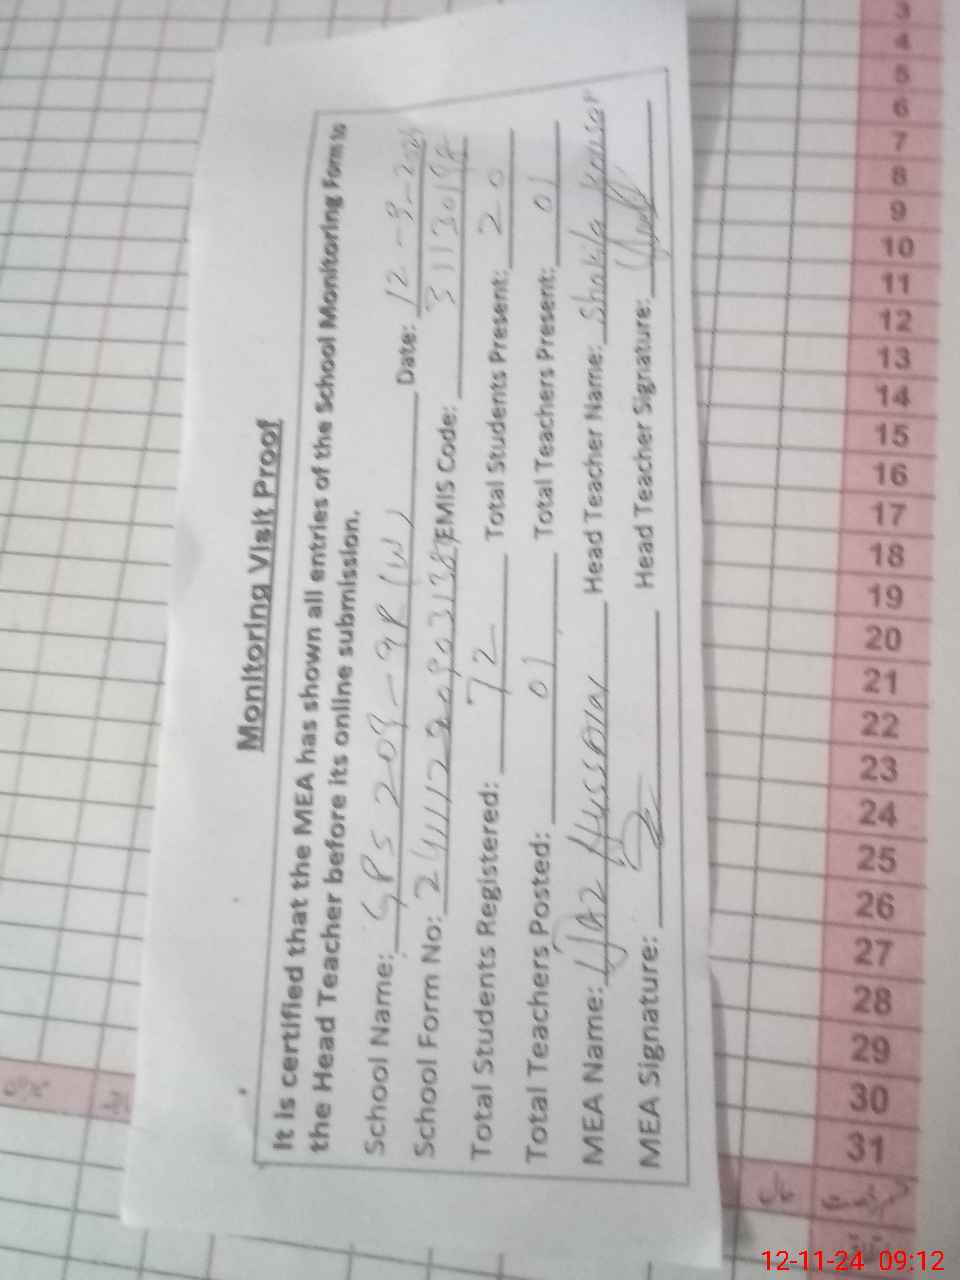 Monitoring Visit Proof
It is certified that the MEA has shown all entries of the School Monitoring Form to
the Head Teacher before its online submission.
School Name: GPS 209-9R (W) Date: 12-9-
School Form No: EMIS Code:
Total Students Registered: 72 Total Students Present: 20
Total Teachers Posted: 01 Total Teachers Present: 01
MEA Name: IJAZ Hussain Head Teacher Name: Shakila Kousar
MEA Signature: Head Teacher Signature:
3
4
5
6
7
8
9
10
11
12
13
14
15
16
17
18
19
20
21
22
23
24
25
26
27
28
29
30
31
12-11-24 09:12